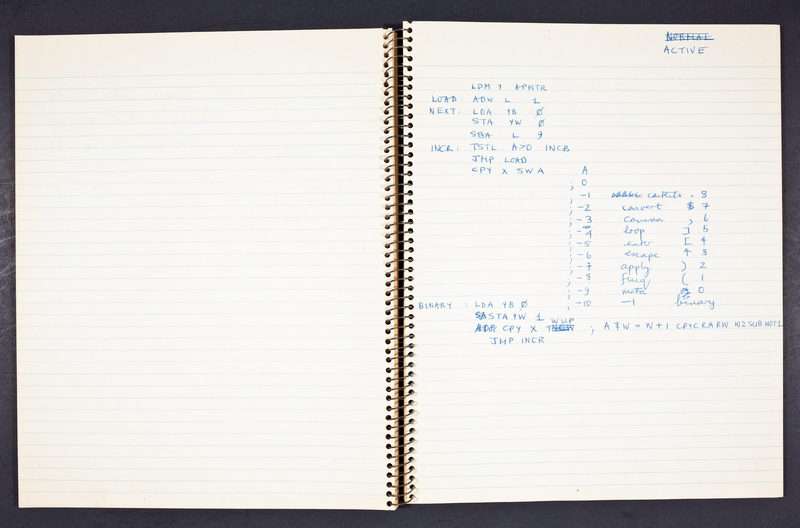 NORMAL
ACTIVE
LDM Y APNTR
LOAD: ADW L 1
NEXT: LDA YB Ø
STA YW Ø
SBA L 9
INCR: TSTL A>0 INCB
JMP LOAD
CPY X SWA A
; 0
; -1 address contents . 8
; -2 convert $ 7
; -3 comma , 6
; -4 loop ] 5
; -5 enter [ 4
; -6 escape ↑ 3
; -7 apply ) 2
; -8 ( 1
; -9 meta 0
BINARY : LDA YB Ø ; -10 -1 binary
STA YW 1 WUP
CPY X ; A & W = W+1 CPYCRARW W2SUBNOT1
JMP INCR